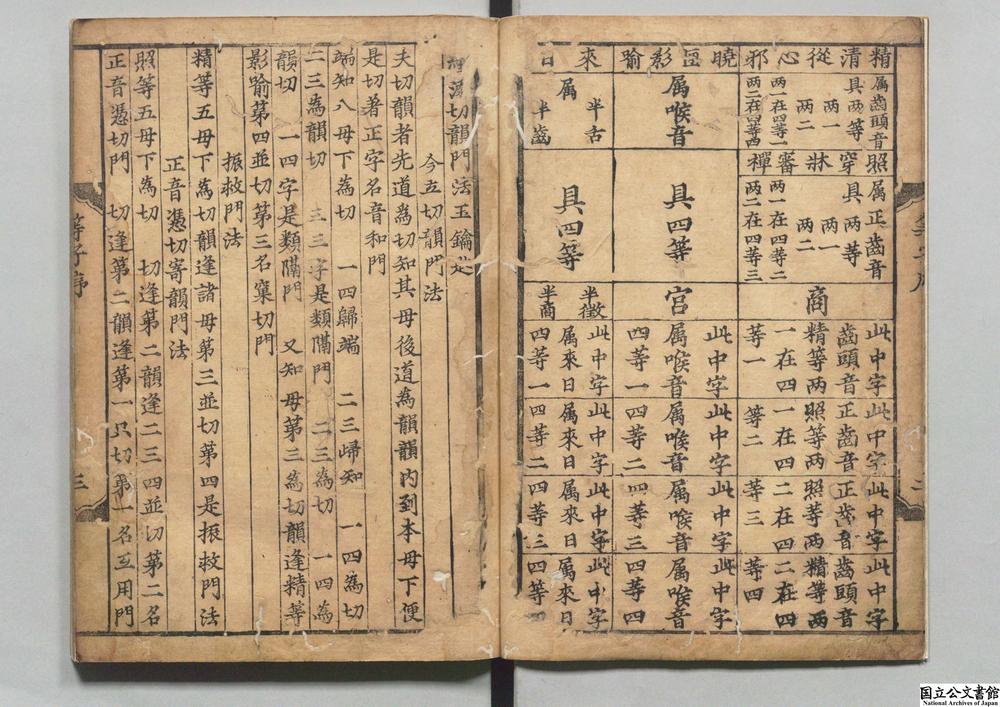 精清從心邪
属齒頭音
具两等
两一
两二
两一在四等一
两二在四等四
照穿牀審禪
属正齒音
具两等
两一
两二
两一在四等二
两二在四等三
商
此中字
齒頭音
精等两
一在四
等一
此中字
正齒音
照等两
一在四
等二
此中字
正齒音
照等两
二在四
等三
此中字
齒頭音
精等两
二在四
等四
曉匣影喻
属喉音
具四等
宮
此中字
属喉音
四等一
此中字
属喉音
四等二
此中字
属喉音
四等三
此中字
属喉音
四等四
來日
半舌
属
半齒
具四等
半徵
半商
此中字
属來日
四等一
此中字
属來日
四等二
此中字
属來日
四等三
此中字
属來日
四等
切韻門法玉鑰
今立切韻門法
夫切韻者先道為切知其母後道為韻韻內到本母下便
是切著正字名音和門
端知八母下為切 一四歸端 二三歸知 一四為切
二三為韻切 三三字是類隔門 二三為切 一四為
韻切 一四字是類隔門 又知母第三為切韻逢精等
影喻第四並切第三名窠切門
振救門法
精等五母下為切韻逢諸母第三並切第四是振救門法
正音憑切寄韻門法
照等五母下為切 切逢第二韻逢二三四並切第二名
正音憑切門 切逢第二韻逢第一只切第一名互用門
等子序 三
国立公文書館
National Archives of Japan